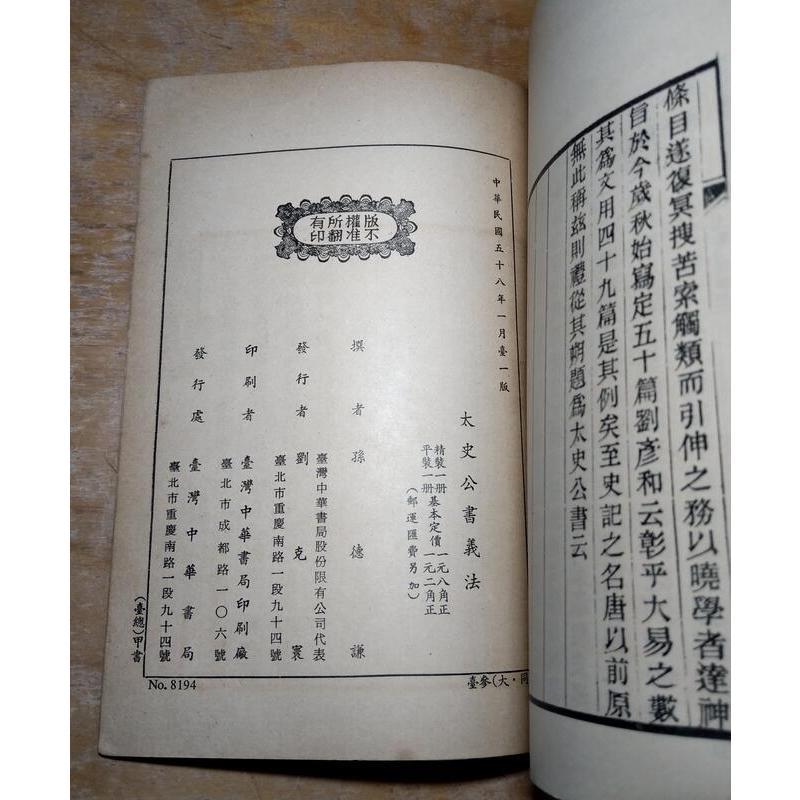 條目遂復冥搜苦索觸類而引伸之務以曉學者達神
恉於今歲秋始寫定五十篇劉彥和云彰乎大易之數
其爲文用四十九篇是其例矣至史記之名唐以前原
無此稱茲則禮從其朔題爲太史公書云
中華民國五十八年一月臺一版
版權所有
不准翻印
太史公書義法
精裝一册基本定價一元八角正
平裝一册基本定價一元二角正
(郵運匯費另加)
撰者孫德謙
臺灣中華書局股份限有公司代表
發行者劉克寰
臺北市重慶南路一段九十四號
印刷者臺灣中華書局印刷廠
臺北市成都路一〇六號
發行處臺灣中華書局
臺北市重慶南路一段九十四號
(臺總)甲書
No. 8194
臺參(大・同